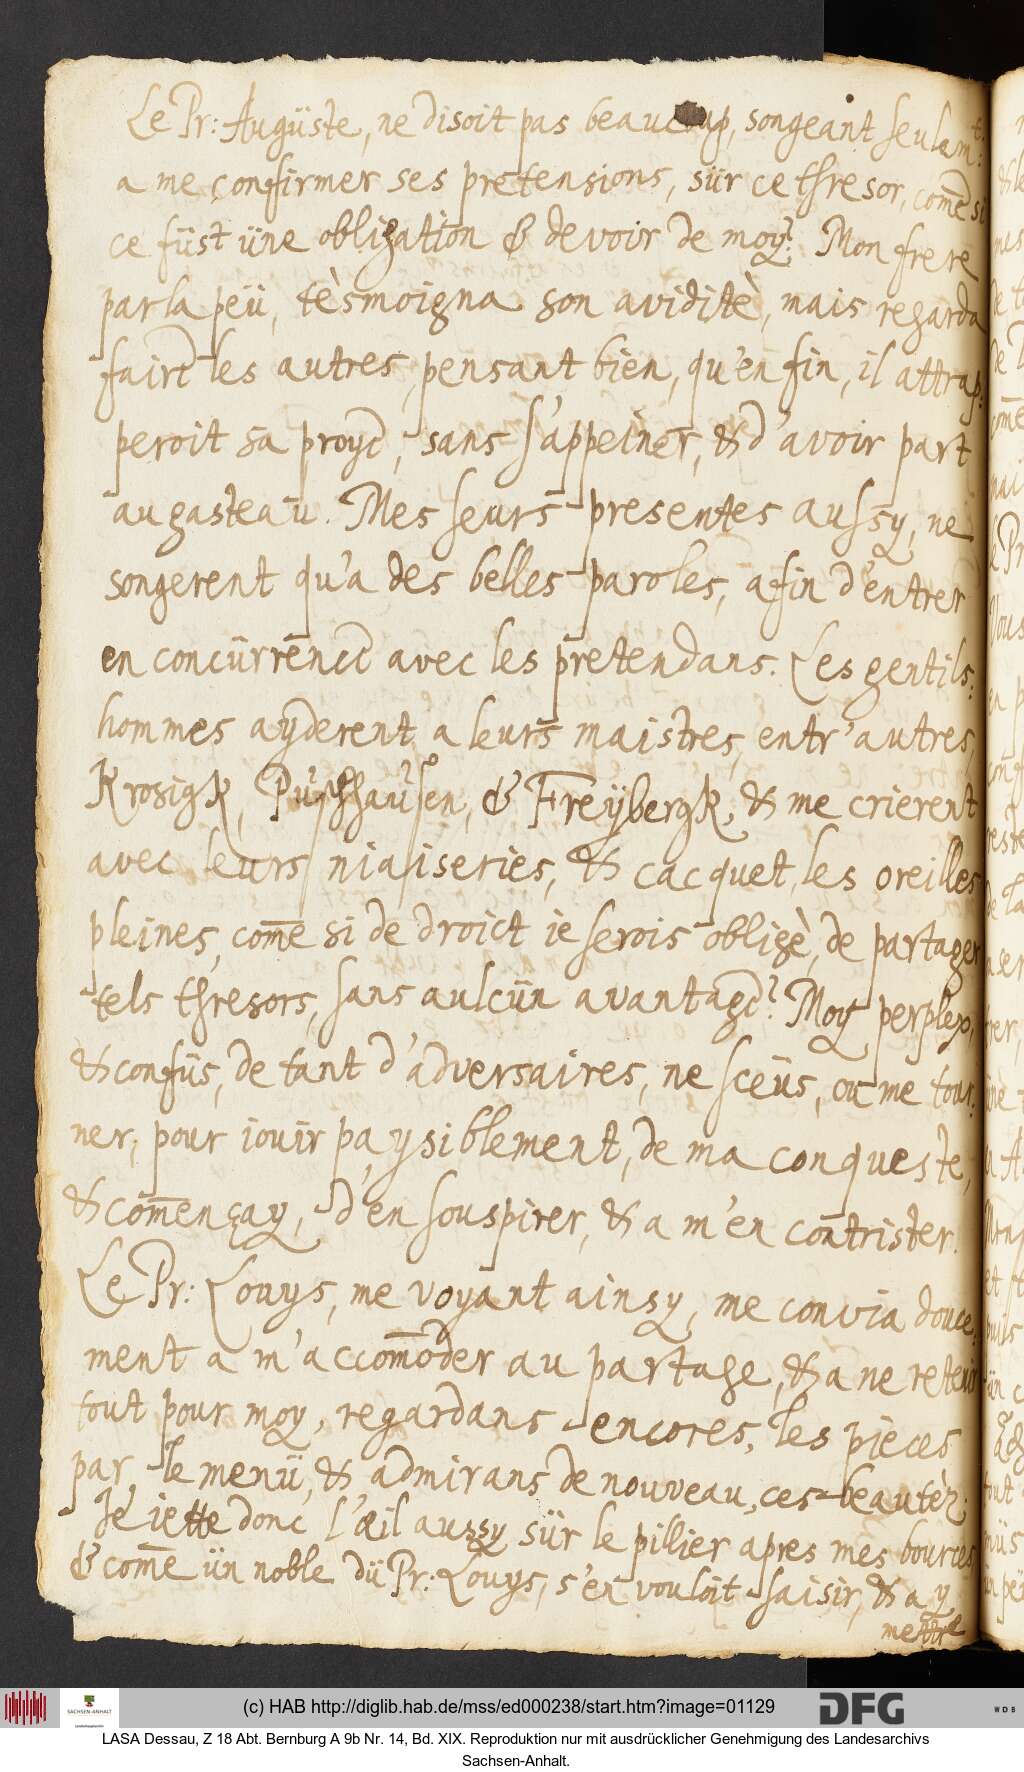 Le Pr: Augüste, ne disoit pas beaucoup, songeant seulemt:
a me confirmer ses pretensions, sür ce thresor, com̄e si
ce füst üne obligation & devoir de moy? Mon frere
par la peü, tèsmoigna son aviditè, mais regarda
faire les autres, pensant bien, qu'en fin, il attrap:
peroit sa proye, sans s'appeiner, & d'avoir part
au gasteau. Mes seurs presentes aussy, ne
songerent qu'a des belles paroles, afin d'entrer
en concürrence avec les pretendans. Les gentils:
hommes ayderent a leurs maistres, entr'autres,
Krosigk, & Freÿbergk, & me crierent
avec leurs niaiseries, & cacquet, les oreilles
pleines, com̄e si de droict ie serois obligè, de partager
tels thresors, sans aulcün avantage? Moy perplex,
& confüs, de tant d'adversaires, ne sceüs, ou me tour:
ner, pour iouir paysiblement, de ma conqueste,
& com̄ençay, d'en souspirer, & a m'en contrister.
Le Pr: Louys, me voyant ainsy, me convia douce:
ment a m'accom̄oder au partage, & a ne retenir
tout pour moy, regardans encores, les pieces
par le menü, & admirans de nouveau, ces beautèz:
Je iette donc l'œil aussy sür le pillier apres mes bources
& com̄e ün noble dü Pr: Louys, s'en vouloit saisir, & a y
mettre
(c) HAB http://diglib.hab.de/mss/ed000238/start.htm?image=01129
DFG
WDB
SACHSEN-ANHALT
LASA Dessau, Z 18 Abt. Bernburg A 9b Nr. 14, Bd. XIX. Reproduktion nur mit ausdrücklicher Genehmigung des Landesarchivs
Sachsen-Anhalt.